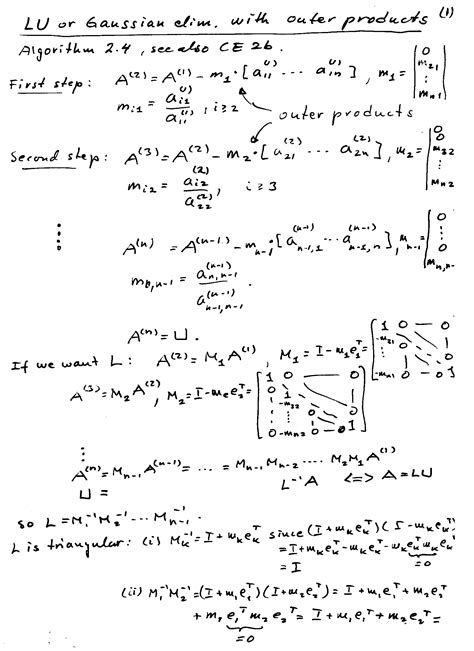 LU or Gaussian elim. with outer products (1)
Algorithm 2.4, see also CE 2b.
First step: A^(2) = A^(1) - m_1·[a_11^(1) ... a_1n^(1)], m_1 = [0 m_21 ⋮ m_n1]
m_i1 = a_i1^(1) / a_11^(1), i≥2
outer products
Second step: A^(3) = A^(2) - m_2·[a_21^(2) ... a_2n^(2)], m_2 = [0 0 m_32 ⋮ m_n2]
m_i2 = a_i2^(2) / a_22^(2), i≥3
⋮
A^(n) = A^(n-1) - m_n-1·[a_n-1,1^(n-1) ... a_n-1,n^(n-1)], m_n-1 = [0 ⋮ 0 m_n,n-1]
m_n,n-1 = a_n,n-1^(n-1) / a_n-1,n-1^(n-1).
A^(n) = U.
If we want L: A^(2) = M_1 A^(1), M_1 = I - m_1 e_1^T = [1 0 — 0 -m_21 ⋮ -m_n1 0 — 0 1]
A^(3) = M_2 A^(2), M_2 = I - m_2 e_2^T = [1 0 — 0 0 1 -m_32 ⋮ 0 -m_n2 0 — 0 1]
⋮
A^(n) = M_n-1 A^(n-1) = ... = M_n-1 M_n-2 .... M_2 M_1 A^(1)
U = L^-1 A <=> A = LU
so L = M_1^-1 M_2^-1 ... M_n-1^-1.
L is triangular: (i) M_k^-1 = I + m_k e_k^T since (I + m_k e_k^T)(I - m_k e_k^T)
= I + m_k e_k^T - m_k e_k^T - m_k e_k^T m_k e_k^T
=0
= I
(ii) M_1^-1 M_2^-1 = (I + m_1 e_1^T)(I + m_2 e_2^T) = I + m_1 e_1^T + m_2 e_2^T
+ m_1 e_1^T m_2 e_2^T = I + m_1 e_1^T + m_2 e_2^T =
=0